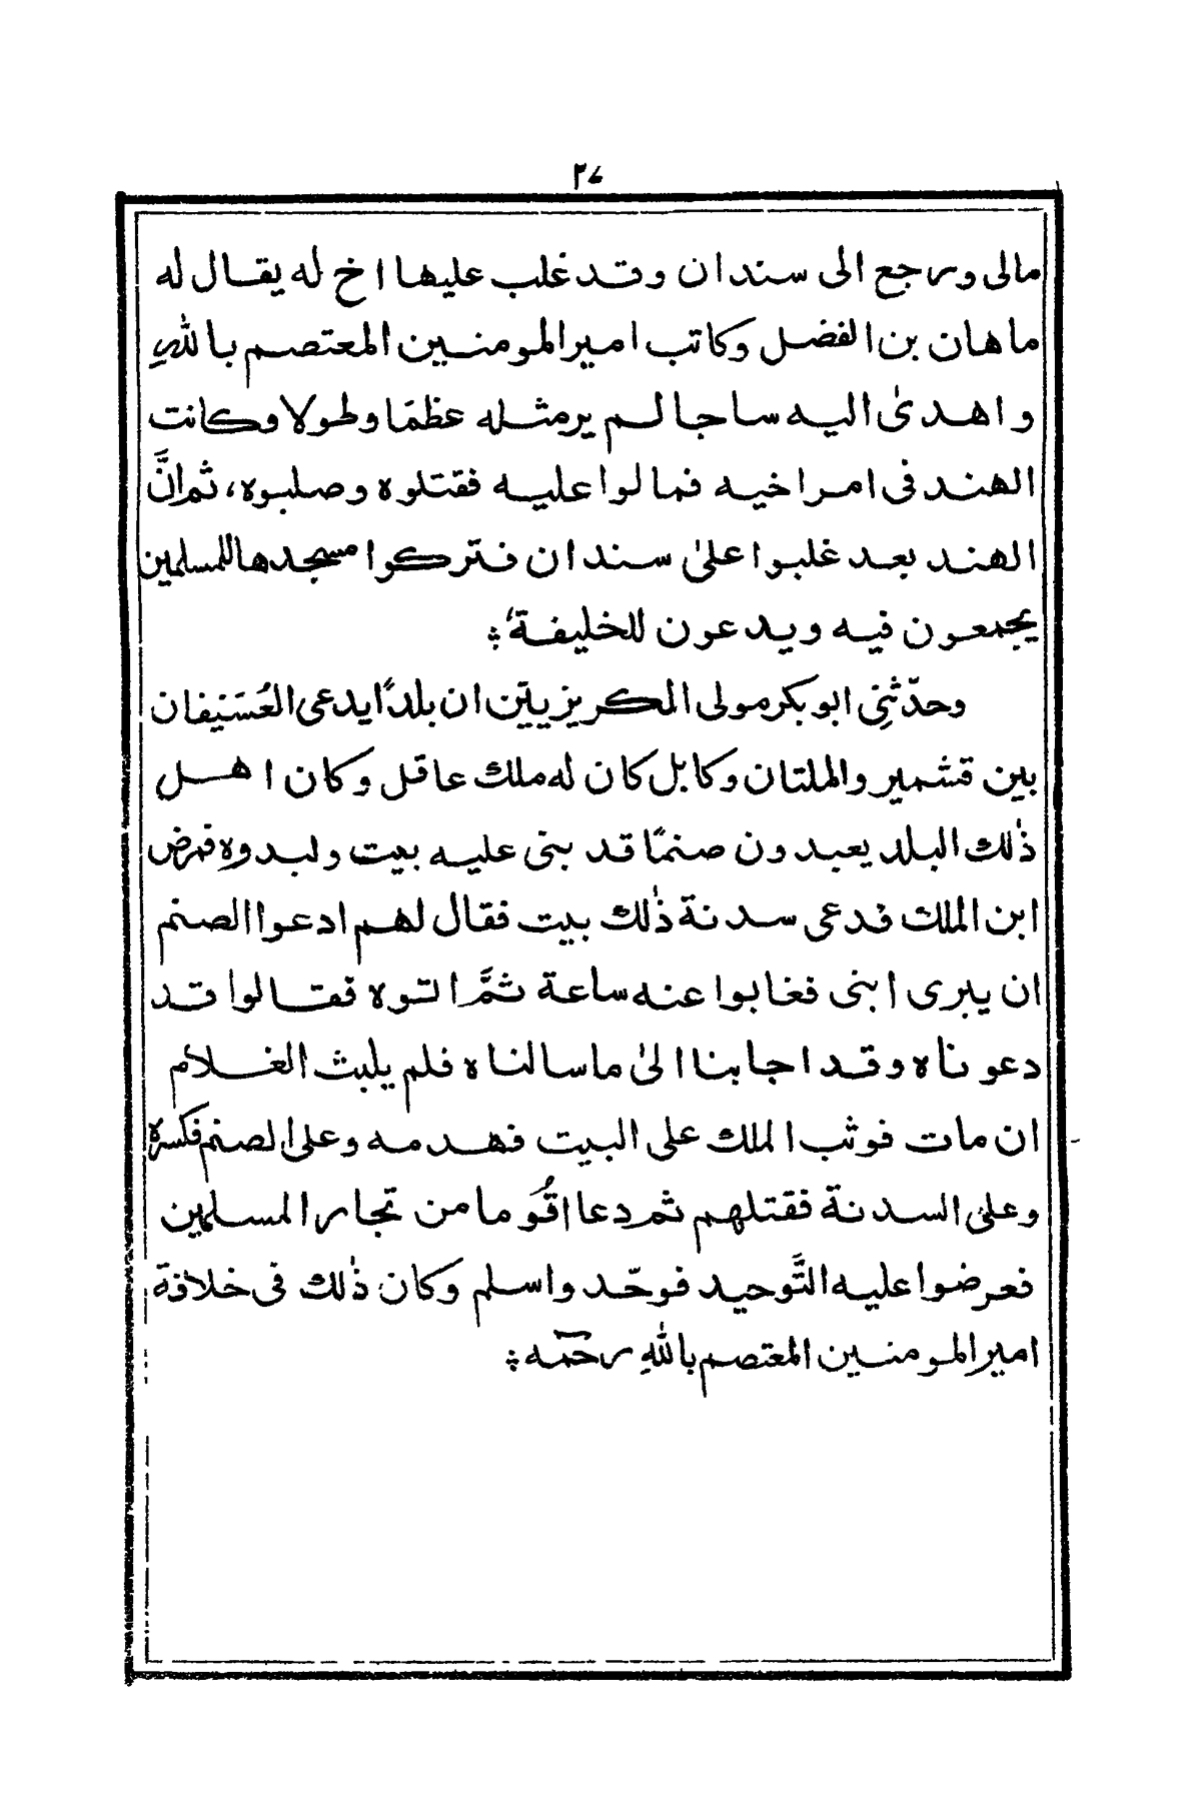 ٢٤
مالى ورجع الى سندان وقد غلب عليها اخ له يقال له
ماهان بن الفضل وكاتب امير المومنين المعتصم باللهِ
واهدىٰ اليه ساجا لم ير مثله عظمًا وطولا وكانت
الهند فى امر اخيه فمالوا عليه فقتلوه وصلبوه، ثم انَّ
الهند بعد غلبوا علىٰ سندان فتركوا مسجدها للمسلمين
يجمعون فيه ويدعون للخليفة،
وحدّثنِى ابو بكر مولى الكريزييّن ان بلدًا يدعى العُسَيفان
بين قشمير والملتان وكابل كان له ملك عاقل وكان اهل
ذٰلك البلد يعبدون صنمًا قد بنى عليه بيت ولبدوه فمرض
ابن الملك فدعى سدنة ذٰلك بيت فقال لهم ادعوا الصنم
ان يبرى ابنى فغابوا عنه ساعة ثمَّ اتوه فقالوا قد
دعوناه وقد اجابنا الىٰ ما سالناه فلم يلبث الغلام
ان مات فوثب الملك على البيت فهدمه وعلى الصنم فكسره
وعلى السدنة فقتلهم ثم دعا اقُوَما من تجار المسلمين
فعرضوا عليه التَّوحيد فوحّد واسلم وكان ذٰلك فى خلافة
امير المومنين المعتصم باللهِ رحمه